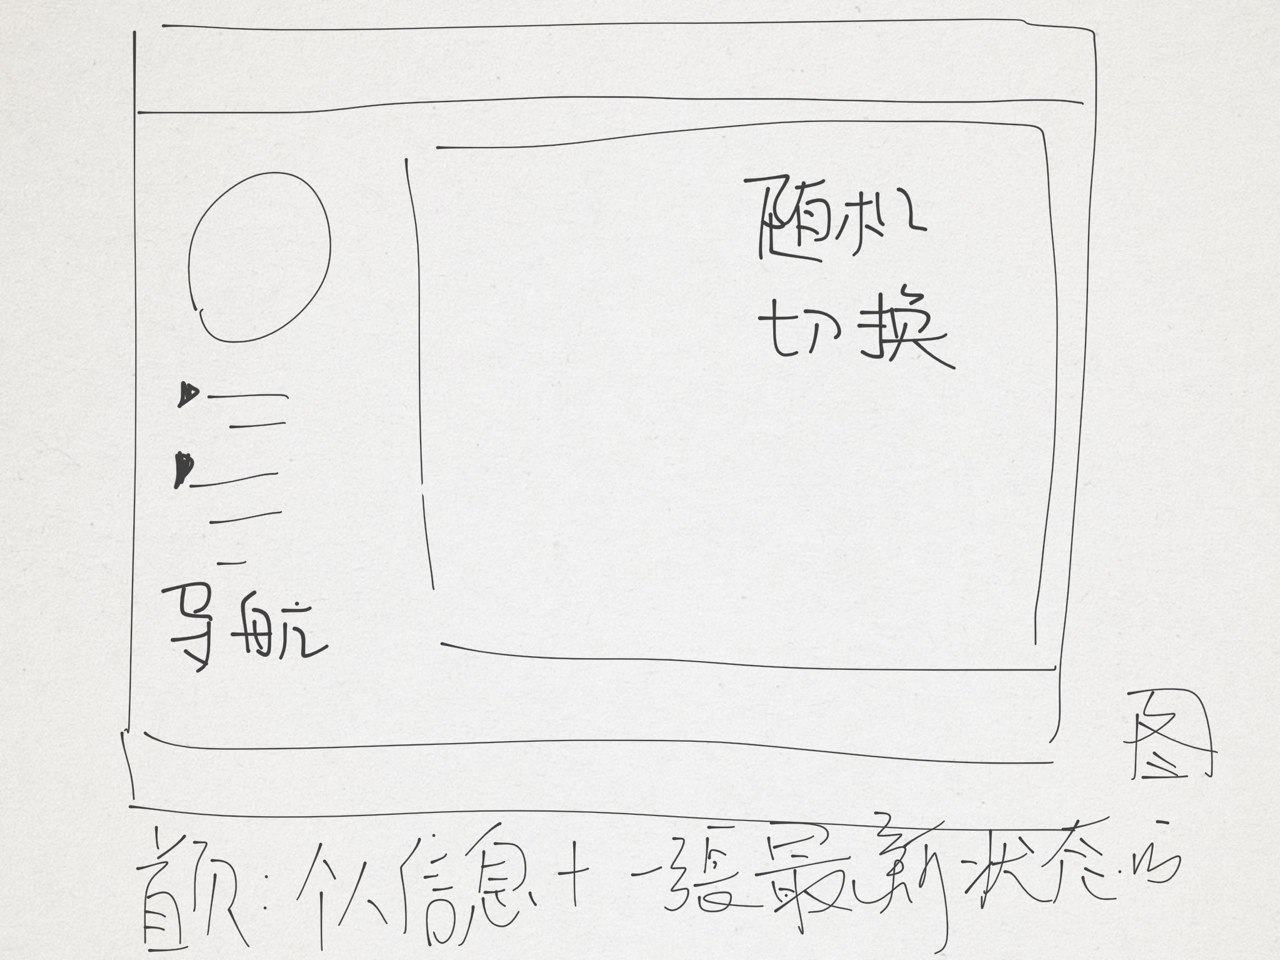 随机
切换
导航
图
首页:个人信息+一張最新状态的